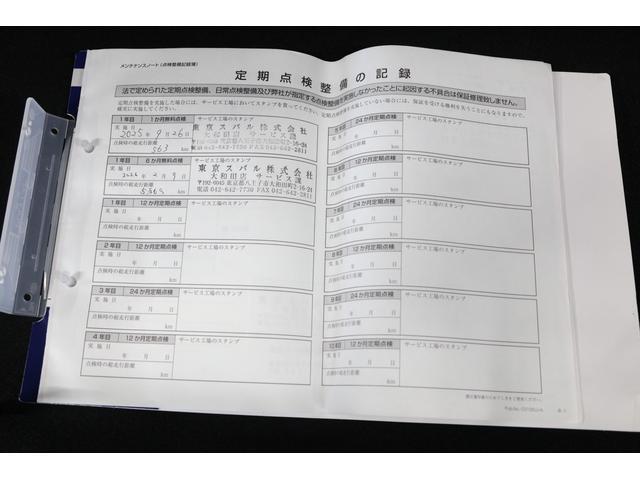 メンテナンスノート（点検整備記録簿）
定期点検整備の記録
法で定められた定期点検整備、日常点検整備及び弊社が指定する点検整備を実施しなかったことに起因する不具合は保証修理致しません。
定期点検整備を実施した場合には、サービス工場においてスタンプを貰ってください。定期点検整備を実施していない場合には、保証を受ける権利を失うことにもなりますので、
1年目 1か月無料点検 サービス工場のスタンプ
実施日 2025年9月26日
東京スバル株式会社
大和田店 サービス課
〒192-0045 東京都八王子市大和田町2-16-24
電話 042-642-7730 FAX 042-642-2811
点検時の総走行距離 563 km
1年目 6か月無料点検 サービス工場のスタンプ
実施日 2026年2月9日
東京スバル株式会社
大和田店 サービス課
〒192-0045 東京都八王子市大和田町2-16-24
電話 042-642-7730 FAX 042-642-2811
点検時の総走行距離 km
1年目 12か月定期点検 サービス工場のスタンプ
実施日 年 月 日
点検時の総走行距離 km
2年目 12か月定期点検 サービス工場のスタンプ
実施日 年 月 日
点検時の総走行距離 km
3年目 24か月定期点検 サービス工場のスタンプ
実施日 年 月 日
点検時の総走行距離 km
4年目 12か月定期点検 サービス工場のスタンプ
実施日 年 月 日
点検時の総走行距離 km
24か月定期点検 サービス工場のスタンプ
実施日 年 月 日
点検時の総走行距離 km
6年目 12か月定期点検 サービス工場のスタンプ
実施日 年 月 日
点検時の総走行距離 km
7年目 24か月定期点検 サービス工場のスタンプ
実施日 年 月 日
点検時の総走行距離 km
8年目 12か月定期点検 サービス工場のスタンプ
実施日 年 月 日
点検時の総走行距離 km
9年目 24か月定期点検 サービス工場のスタンプ
実施日 年 月 日
点検時の総走行距離 km
10年目 12か月定期点検 サービス工場のスタンプ
実施日 年 月 日
点検時の総走行距離 km